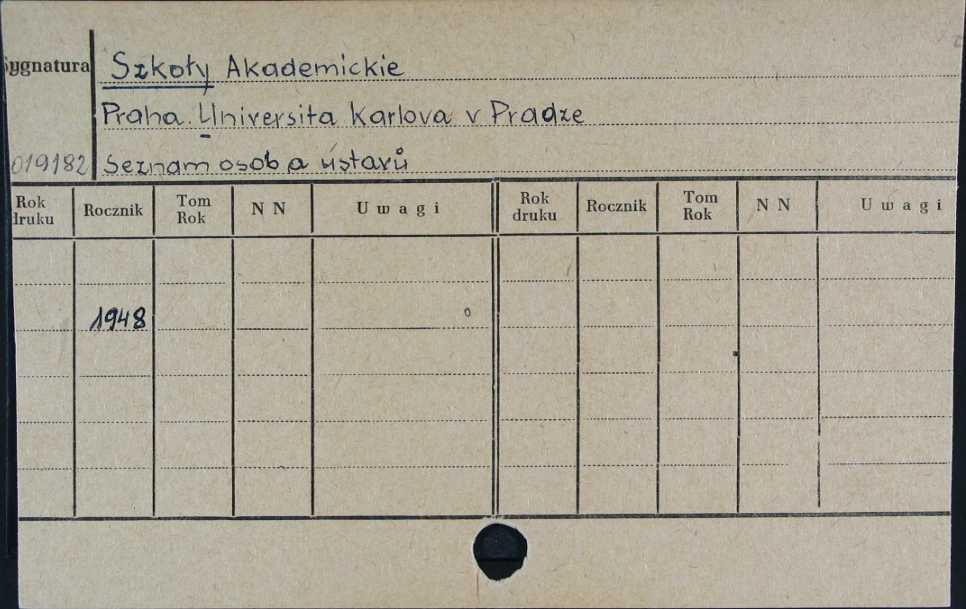 Sygnatura Szkoły Akademickie
Praha. Universita Karlova v Pradze
019182 Seznam osob a ústavů
Rok druku Rocznik Tom Rok N N Uwagi Rok druku Rocznik Tom Rok N N Uwagi
1948